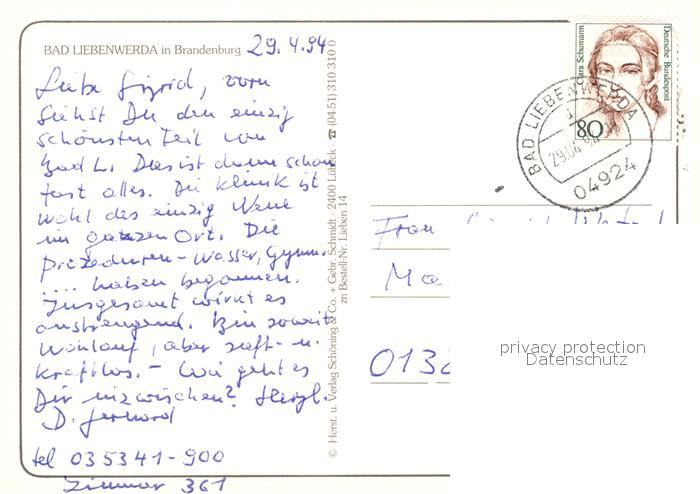 BAD LIEBENWERDA in Brandenburg 29.4.94
Liebe Sigrid, vorn
siehst Du den einzig
schönsten Teil von
Bad L. Das ist dann schon
fast alles. Die Klinik ist
wohl das einzig Neue
im ganzen Ort. Die
Prozeduren - Wasser, Gymn.
.... haben begonnen.
Insgesamt wirkt es
anstrengend. Bin soweit
wohlauf, aber saft- u.
kraftlos. - Wie geht es
Dir inzwischen? Herzl.
D. Gerhard
tel 035341-900
Zimmer 361
© Herst. u. Verlag Schöning & Co. + Gebr. Schmidt · 2400 Lübeck · ☎ (04 51) 310 310 0
zu Bestell-Nr. Lieben 14
Clara Schumann
Deutsche Bundespost
80
BAD LIEBENWERDA
29.04.94
04924
Frau
Ma
013
privacy protection
Datenschutz